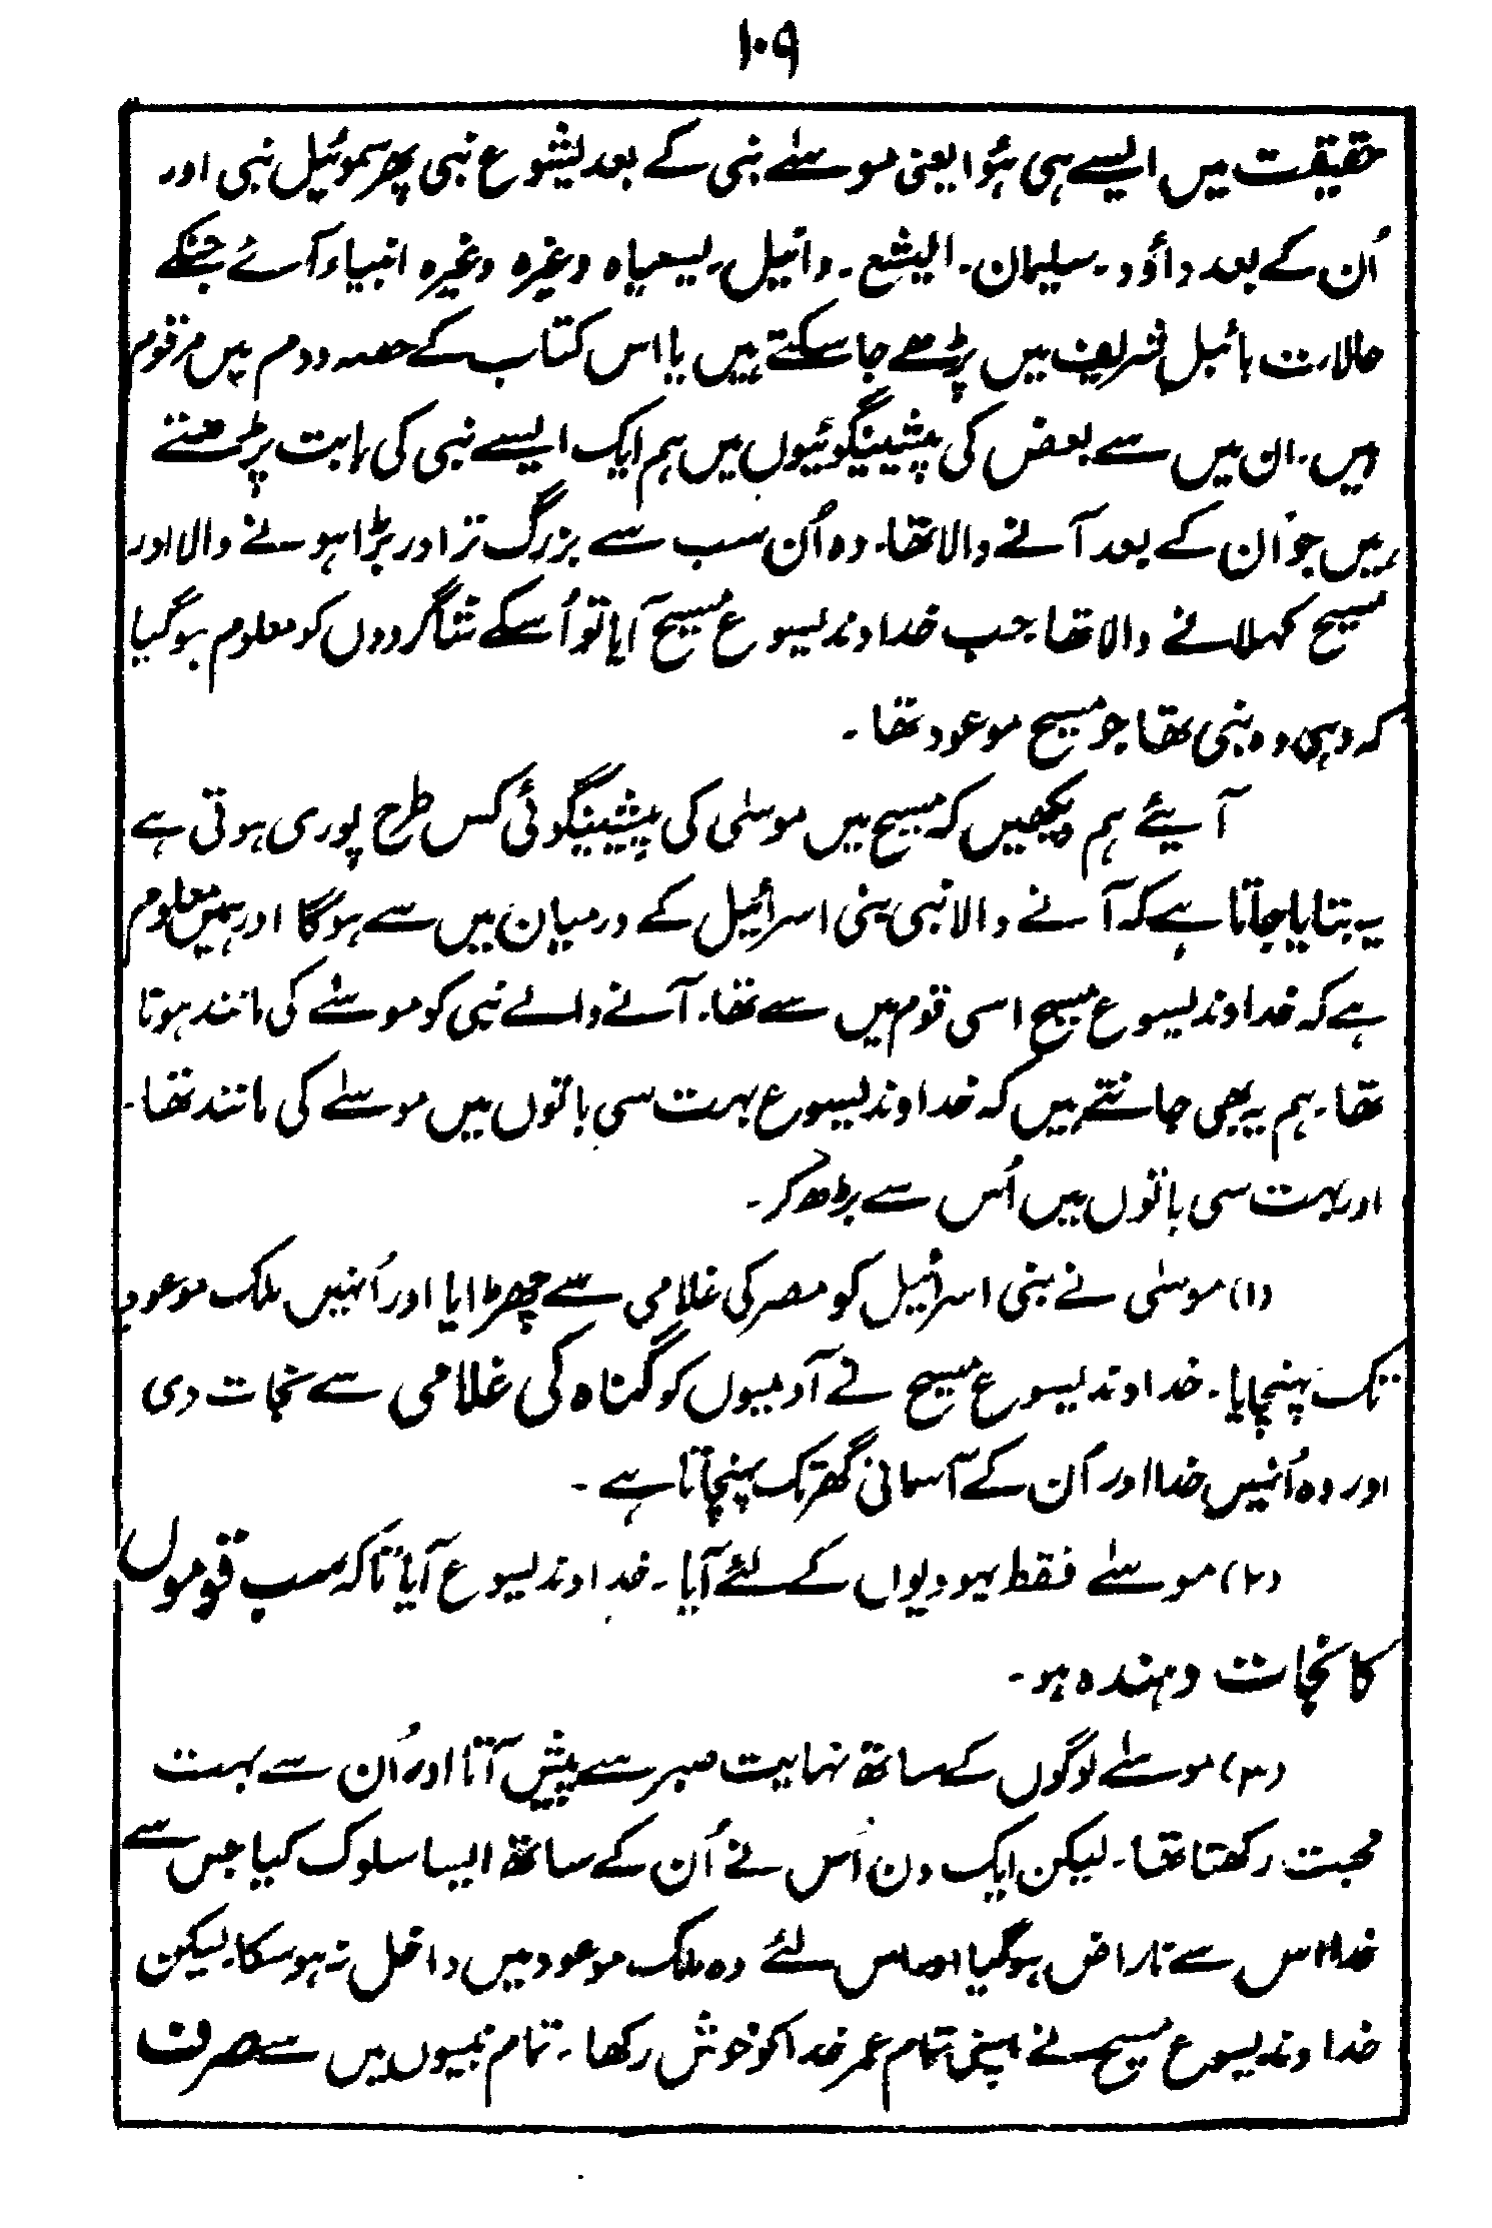 ۱۰۹
حقیقت میں ایسے ہی ہؤا یعنی موسےٰ نبی کے بعد یشوع نبی پھر سموئیل نبی اور
اُن کے بعد داؤد۔ سلیمان۔ الیشع۔ دانیل۔ یسعیاہ وغیرہ وغیرہ انبیاء آئے جنکے
حالات بائبل شریف میں پڑھے جا سکتے ہیں یا اس کتاب کے حصہ دوم میں مرقوم
ہیں۔ ان میں سے بعض کی پیشینگوئیوں میں ہم ایک ایسے نبی کی بابت پڑھتے
ہیں جو اُن کے بعد آنے والا تھا۔ وہ اُن سب سے بزرگ تر اور بڑا ہونے والا اور
مسیح کہلانے والا تھا جب خداوند یسوع مسیح آیا تو اُسکے شاگردوں کو معلوم ہو گیا
کہ وہی وہ نبی تھا جو مسیح موعود تھا۔
آیئے ہم دیکھیں کہ مسیح میں موسیٰ کی پیشینگوئی کس طرح پوری ہوتی ہے
یہ بتایا جاتا ہے کہ آنے والا نبی بنی اسرائیل کے درمیان میں سے ہو گا اور ہمیں معلوم
ہے کہ خداوند یسوع مسیح اسی قوم میں سے تھا۔ آنے والے نبی کو موسےٰ کی مانند ہوتا
تھا۔ ہم یہ بھی جانتے ہیں کہ خداوند یسوع بہت سی باتوں میں موسےٰ کی مانند تھا۔
اور بہت سی باتوں میں اُس سے بڑھ کر۔
(۱) موسیٰ نے بنی اسرائیل کو مصر کی غلامی سے چھڑایا اور اُنہیں ملک موعود
تک پہنچایا۔ خداوند یسوع مسیح نے آدمیوں کو گناہ کی غلامی سے نجات دی
اور وہ اُنہیں خدا اور اُن کے آسمانی گھر تک پہنچاتا ہے۔
(۲) موسےٰ فقط یہودیوں کے لئے آیا۔ خداوند یسوع آیا تاکہ سب قوموں
کا نجات دہندہ ہو۔
(۳) موسےٰ لوگوں کے ساتھ نہایت صبر سے پیش آتا اور اُن سے بہت
محبت رکھتا تھا۔ لیکن ایک دن اُس نے اُن کے ساتھ ایسا سلوک کیا جس سے
خدا اس سے ناراض ہو گیا اور اس لئے وہ ملک موعود میں داخل نہ ہو سکا۔ لیکن
خداوند یسوع مسیح نے اپنی تمام عمر خدا کو خوش رکھا۔ تمام نبیوں میں سے صرف